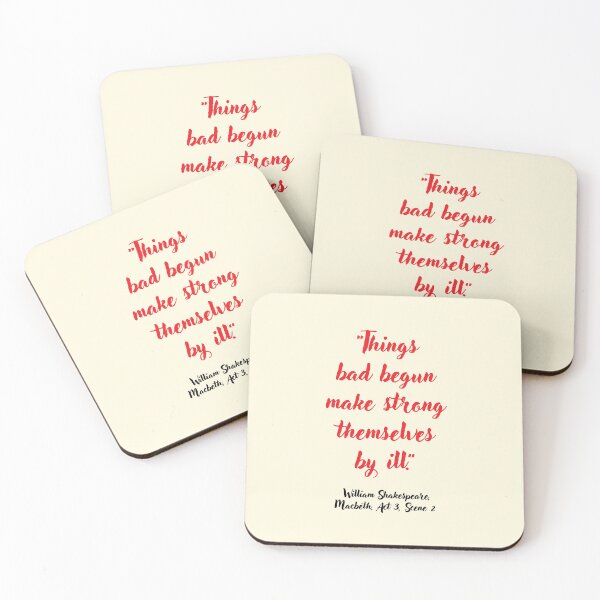 "Things
bad begun
make strong
"Things
bad begun
make strong
themselves
by ill."
"Things
bad begun
make strong
themselves
by ill."
William
Macbeth, Act 3,
"Things
bad begun
make strong
themselves
by ill."
William Shakespeare,
Macbeth, Act 3, Scene 2